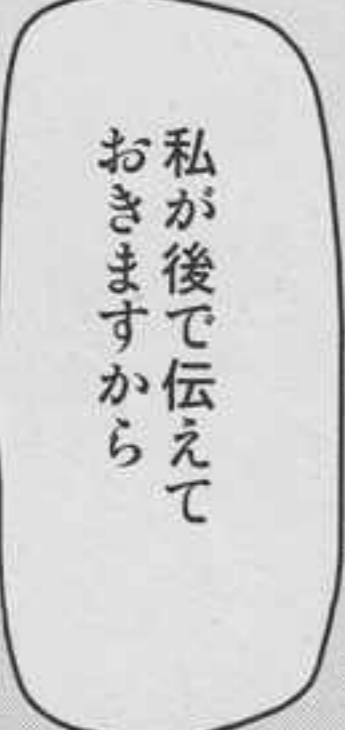 私が後で伝えて
おきますから